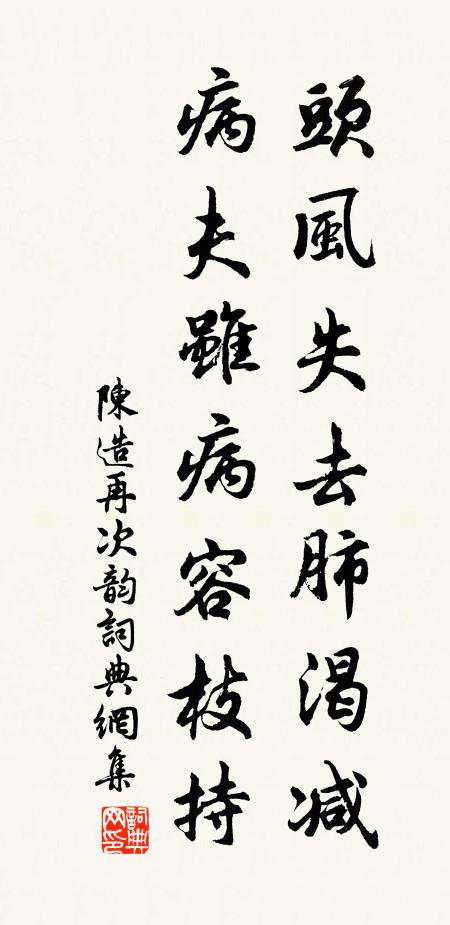 頭風失去肺渴减
病夫雖病容枝持
陳造再次韵詞典網集
詞典网印